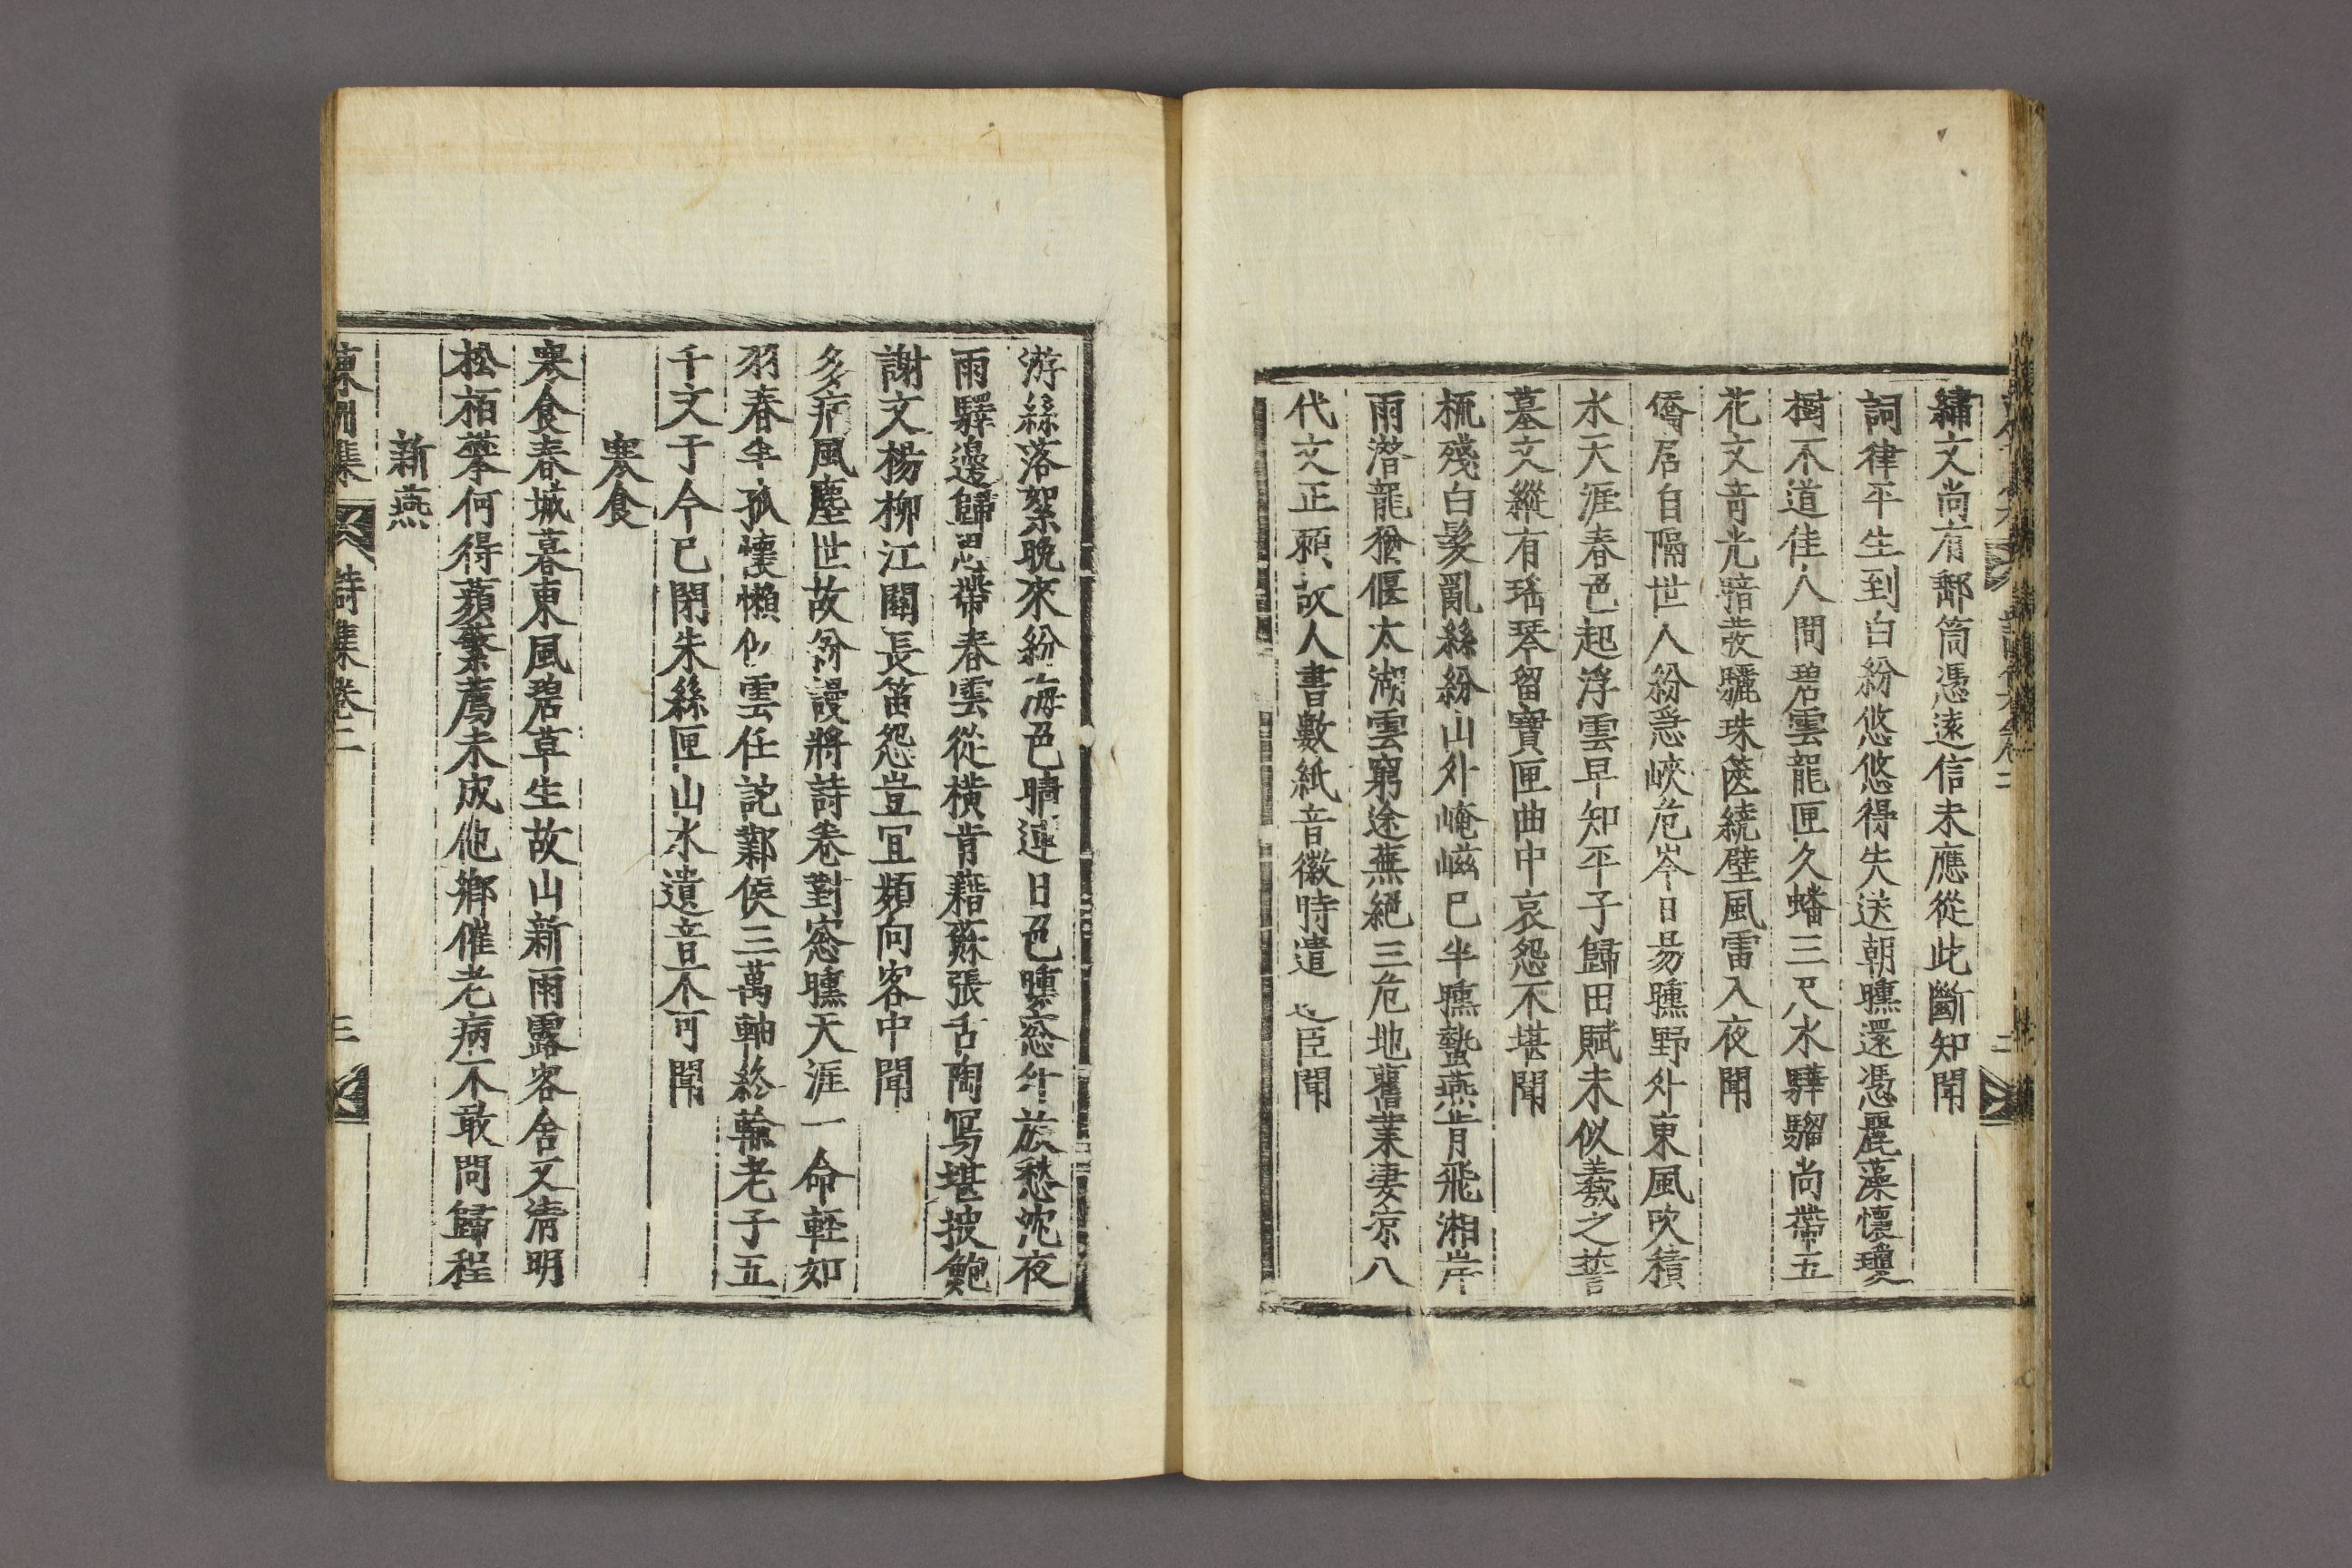 繡文尚有郵筒憑遠信未應從此斷知聞
詞律平生到白紛悠悠得失送朝曛還憑麗藻懷瓊
樹不道佳人間碧雲龍匣久蟠三尺水驊騮尚帶五
花文竒光暗發驪珠篋繞壁風雷入夜聞
僑居自隔世人紛急峽危岑日易曛野外東風吹積
水天涯春色起浮雲早知平子歸田賦未似羲之誓
墓文縱有瑤琴留寶匣曲中哀怨不堪聞
梳殘白髮亂絲紛山外崦嵫已半曛蟄燕肯飛湘岸
雨潛龍猶偃太湖雲窮途蕪絕三危地舊業凄凉八
代文正賴故人書數紙音徽時遣 臣聞
游絲落絮晚來紛海色晴連日色曛窓外旅愁沈夜
雨驛邊歸思帶春雲從橫肯藉蘇張舌陶寫堪披鮑
謝文楊柳江關長笛怨豈宜頻向客中聞
多病風塵世故紛謾將詩卷對窓曛天涯一命輕如
羽春半孤懷懶似雲任詑鄴侯三萬軸終輸老子五
千文于今已閉朱絲匣山水遺音不可聞
寒食
寒食春城暮東風碧草生故山新雨露客舍又淸明
松栢攀何得蘋蘩薦未成他鄉催老病不敢問歸程
新燕
東州集 詩集卷二 三